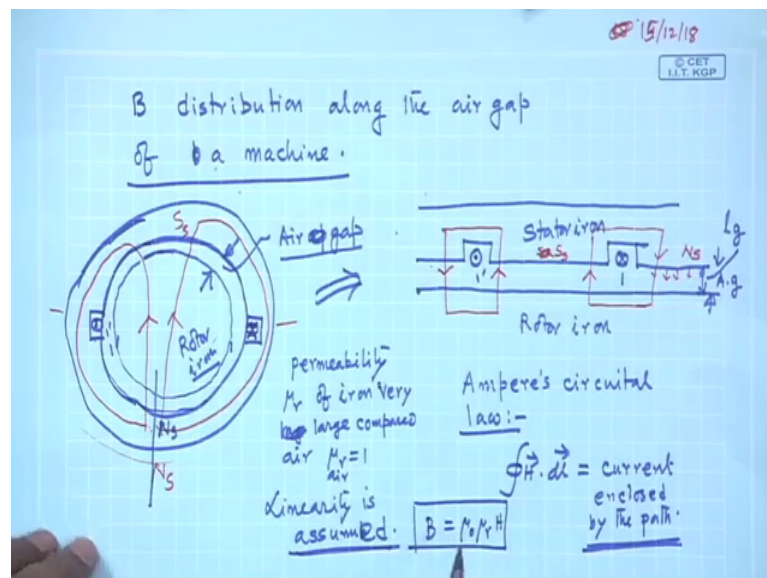 15/12/18
© CET
I.I.T. KGP
B distribution along the air gap
of a machine.
Ss
Air gap
Rotor
iron
1'
1
Ns
Ns
Stator iron
Ss
Ns
lg
A.g
1'
1
Rotor iron
permeability
μr of iron very
large compared
air μr = 1
air
Linearity is
assumed.
B = μ0 μr H
Ampere's circuital
law:-
∮H. dl = current
enclosed
by the path.